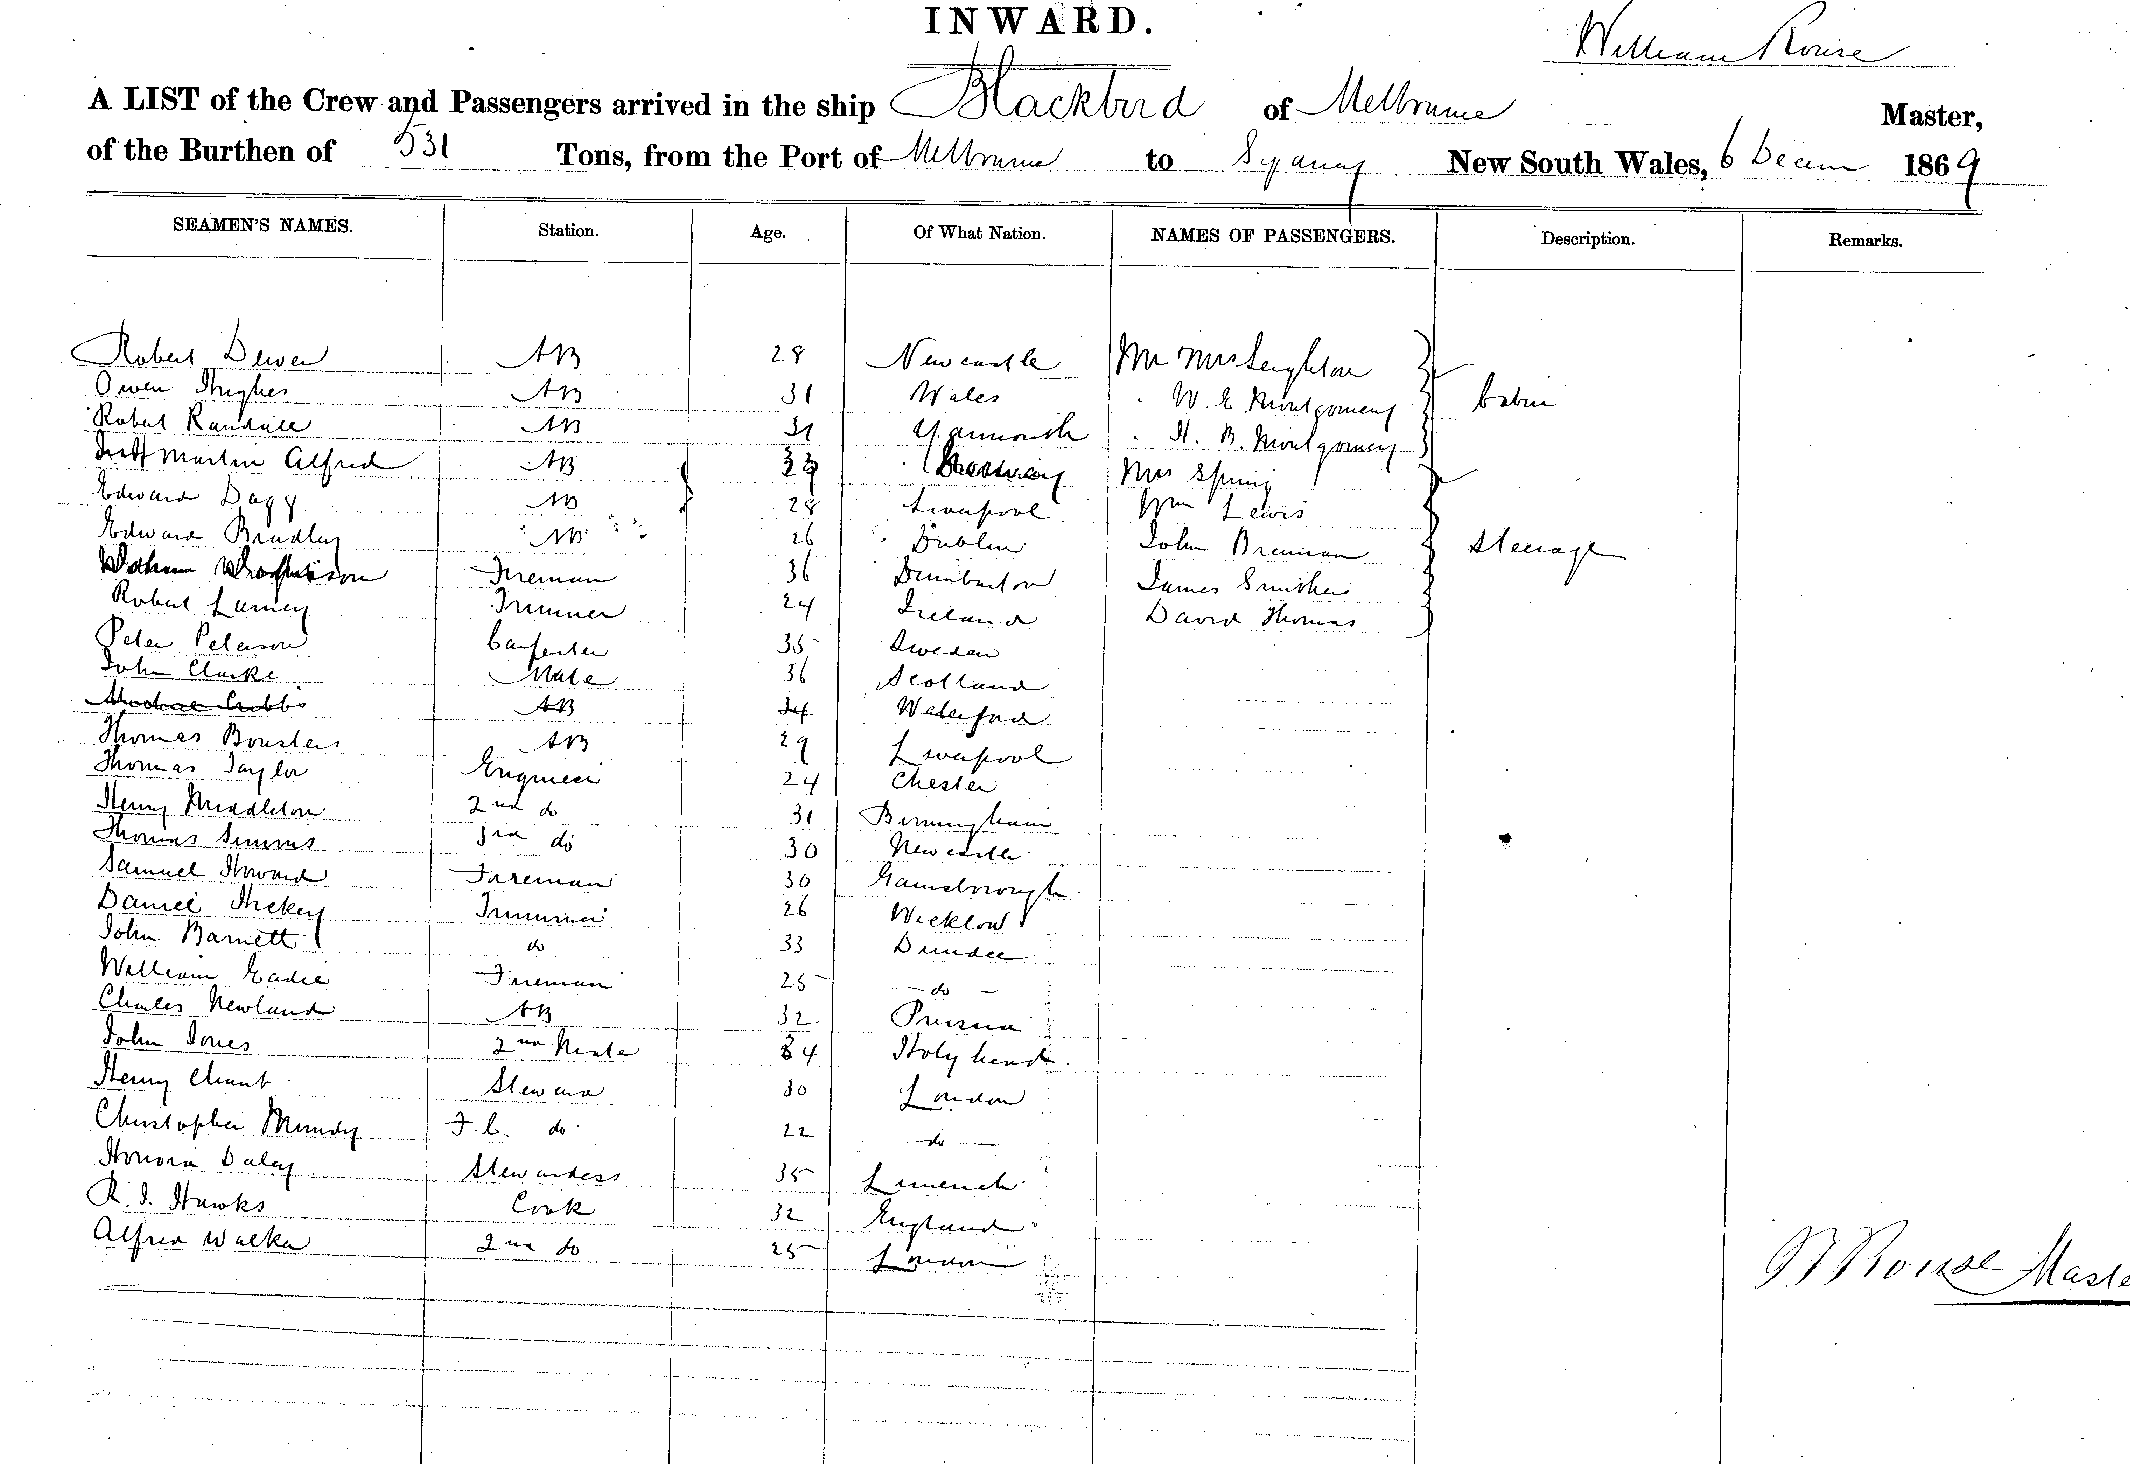 INWARD.
William Rouse
A LIST of the Crew and Passengers arrived in the ship Blackbird of Melbourne Master,
of the Burthen of 531 Tons, from the Port of Melbourne to Sydney New South Wales, 6 Decem 1869
SEAMEN'S NAMES. Station. Age. Of What Nation. NAMES OF PASSENGERS. Description. Remarks.
Robert Dewer AB 28 Newcastle Mr Mrs Leighton
Owen Hughes AB 31 Wales " W. E Montgomery Cabin
Robert Randall AB 31 Yarmouth " H. B. Montgomery
Martin Alfred AB Mrs Spring
Edward Dagg AB 28 Liverpool Wm Lewis
Edward Bradley AB 26 Dublin John Brennan Steerage
Fireman 36 Dumbarton James Smithers
Robert Larney Trimmer 24 Ireland David Thomas
Peter Peterson Carpenter 35 Sweden
John Clarke Mate 36 Scotland
AB Waterford
Thomas AB 29 Liverpool
Thomas Taylor Engineer 24 Chester
Henry Middleton 2nd do 31 Birmingham
Thomas Simms 3rd do 30 Newcastle
Samuel Howard Fireman 30 Gainsborough
Daniel Hickey Trimmer 26 Wicklow
John Barnett do 33 Dundee
William Eadie Fireman 25 - do -
Charles Newland AB 32 Prussia
John Jones 2nd Mate 34 Holyhead
Henry Chant Steward 30 London
Christopher Mundy F. C. do 22 - do -
Honora Daley Stewardess 35 Limerick
R. J. Hawks Cook 32 England
Alfred Walker 2nd do 25 London
W Rouse Maste